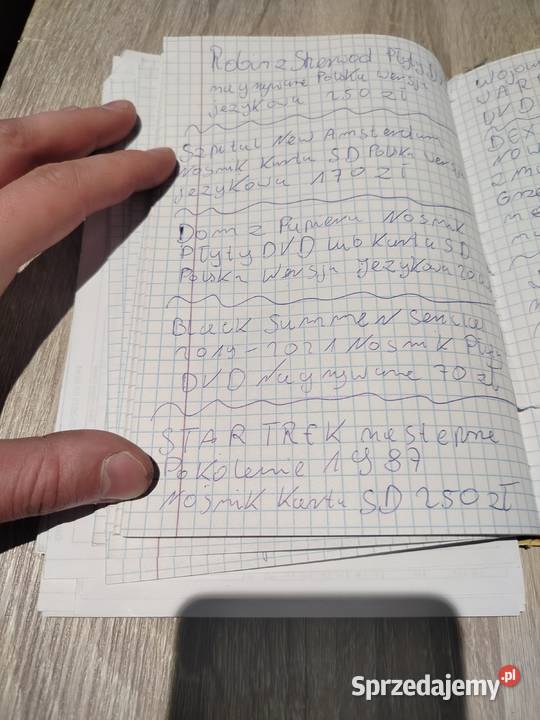 Robin z Sherwood Płyty D
nagrywane Polska Wersja
językowa 250 zł
Szpital New Amsterdam
Nośnik Karta SD Polska Wersja
językowa 170 zł
Dom z Papieru Nośnik
Płyty DVD lub Karta SD
Polska Wersja Językowa 200
Black Summer Seria
2019-2021 Nośnik Płyty
DVD Nagrywane 70 zł
STAR TREK następne
Pokolenie 1987
Nośnik Karta SD 250 zł
DVD
DEX
NOW
Sprzedajemy.pl